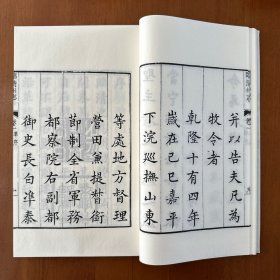 并以告夫凡為
牧令者
乾隆十有四年
歲在己巳嘉平
下浣巡撫山東
等處地方督理
營田兼提督銜
節制全省軍務
都察院右副都
御史長白準泰